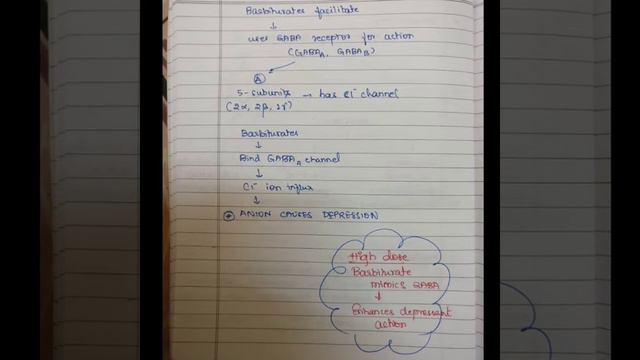 Barbiturates facilitate
↓
uses GABA receptor for action
(GABA_A, GABA_B)
Ⓐ
5-subunits → has Cl⁻ channel
(2α, 2β, 1γ)
Barbiturates
↓
Bind GABA_A channel
↓
Cl⁻ ion influx
↓
ANION CAUSES DEPRESSION
High dose
Barbiturate
mimics GABA
↓
Enhances depressant
action